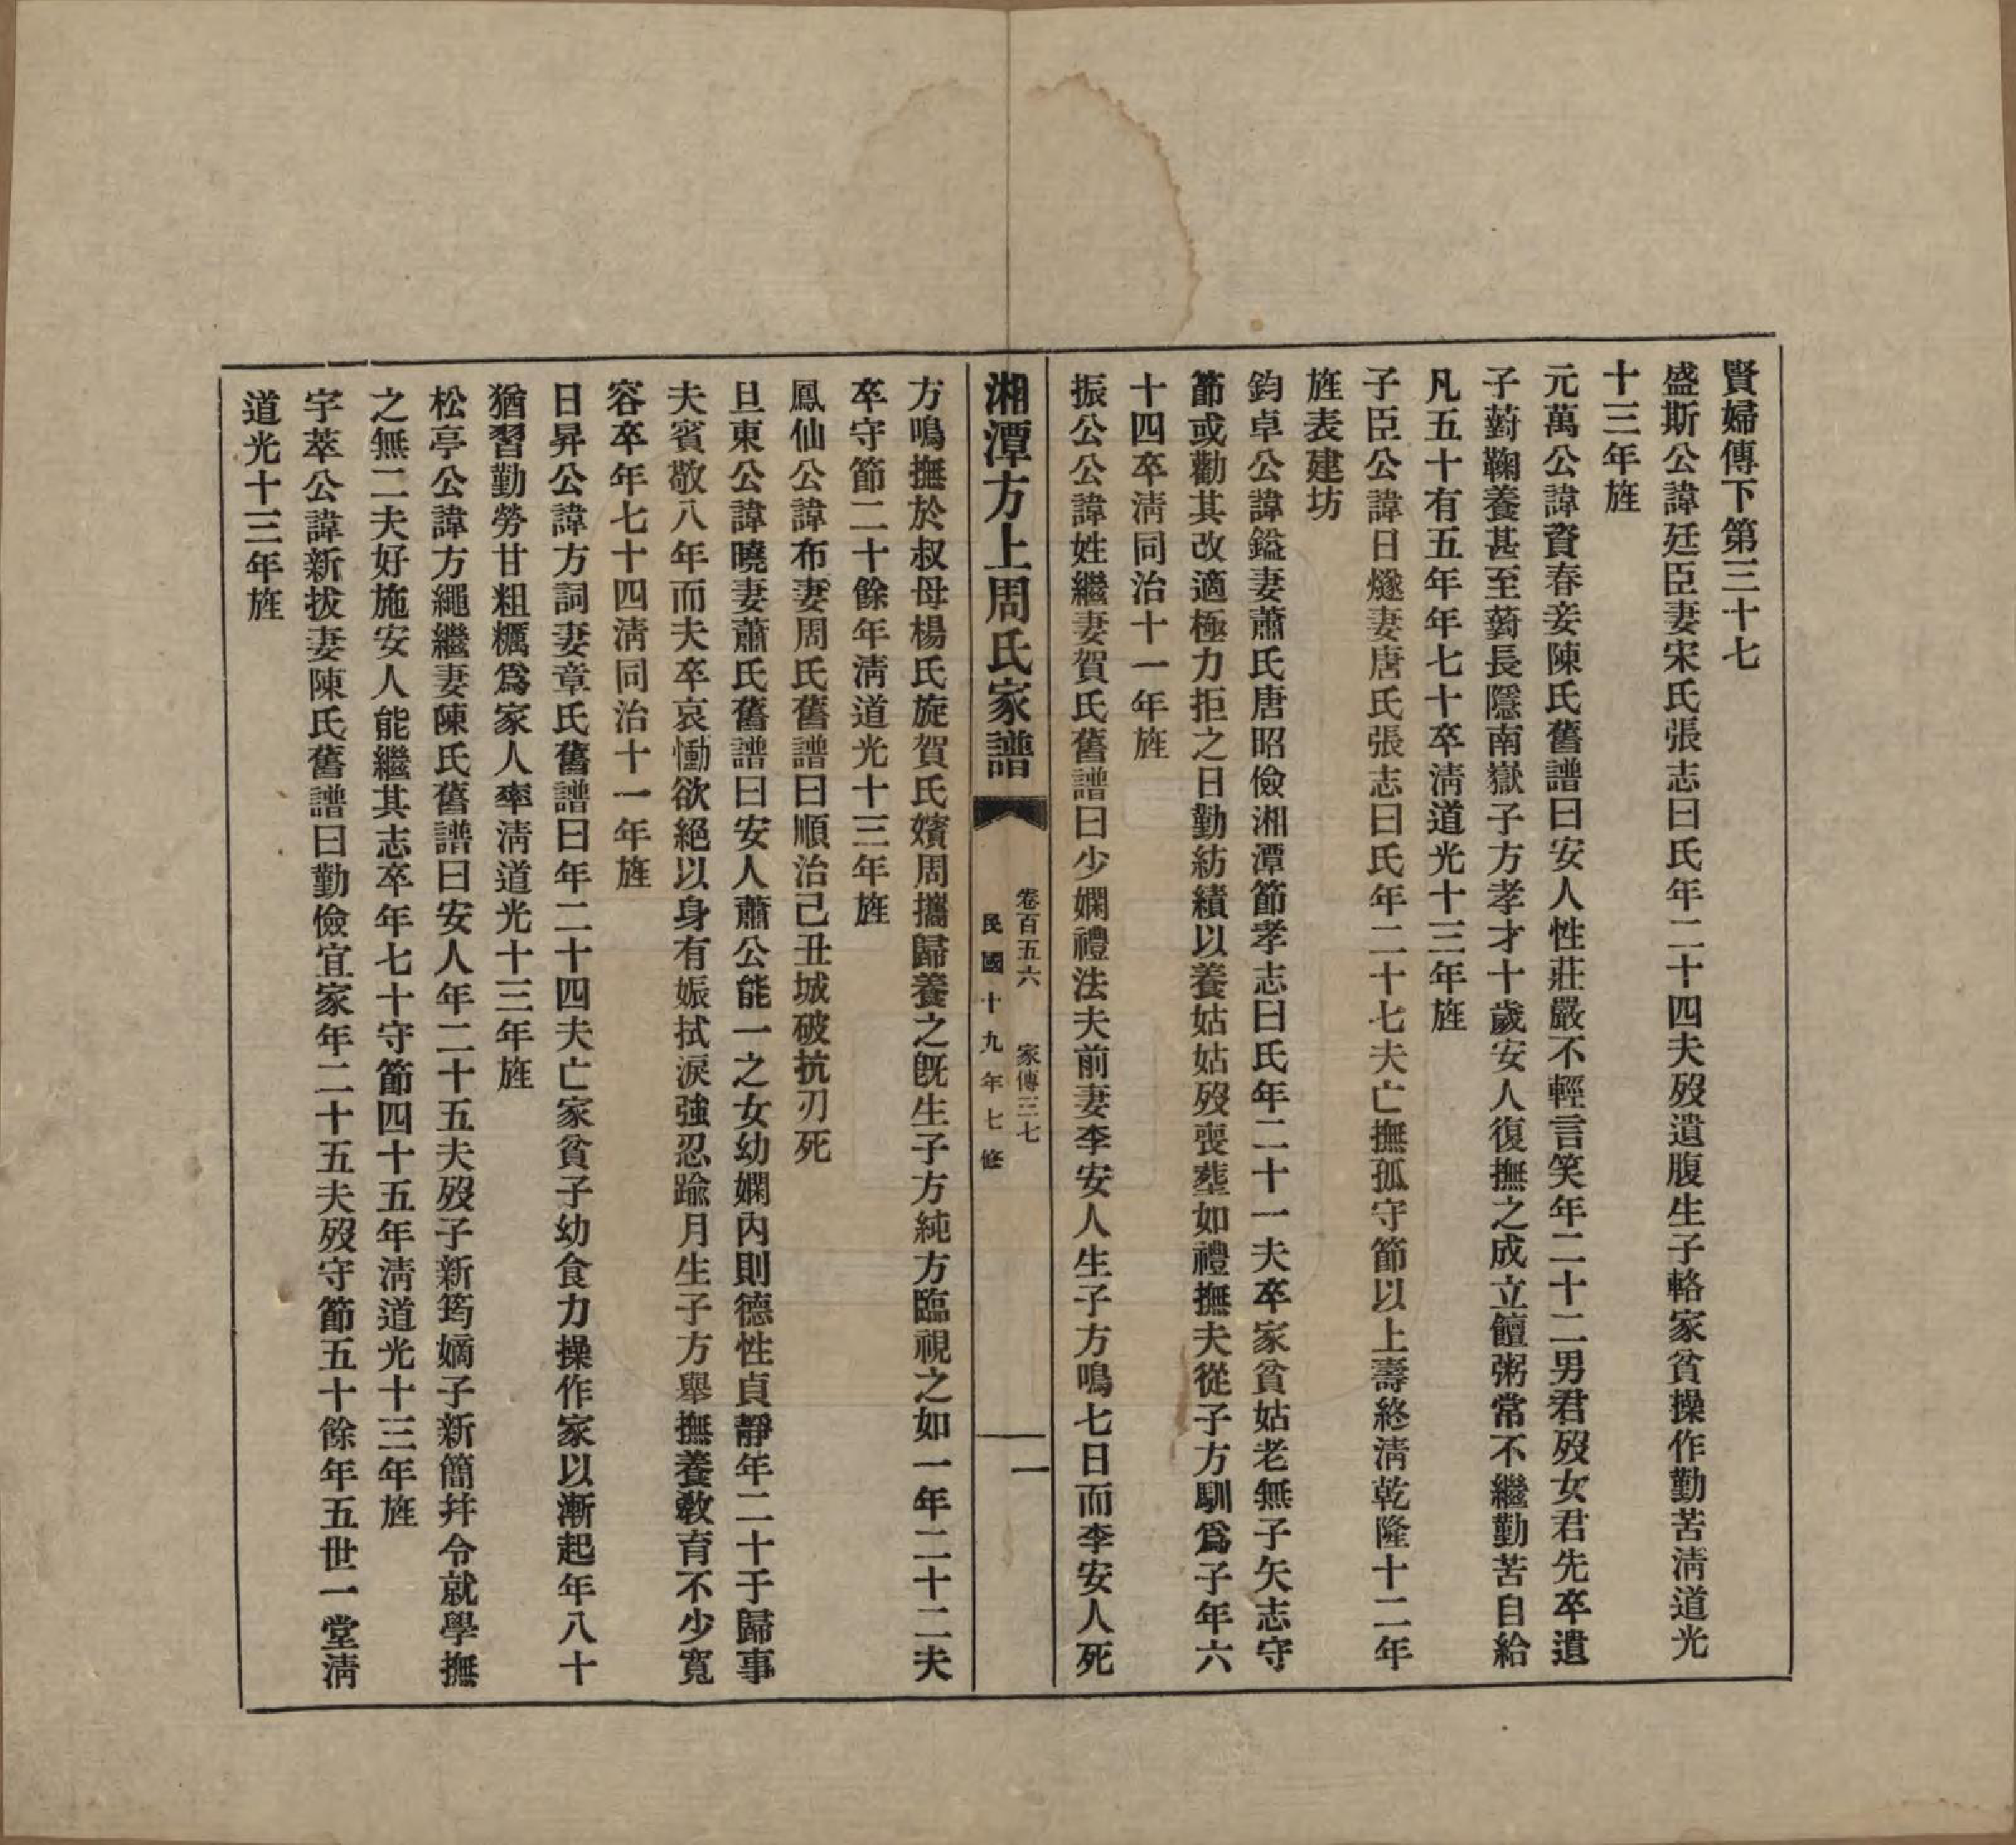 賢婦傳下第三十七
盛斯公諱廷臣妻宋氏張志曰氏年二十四夫歿遺腹生子輅家貧操作勤苦清道光
十三年旌
元萬公諱資春妾陳氏舊譜曰安人性莊嚴不輕言笑年二十二男君歿女君先卒遺
子薱鞠養甚至薱長隱南嶽子方孝才十歲安人復撫之成立饘粥常不繼勤苦自給
凡五十有五年年七十卒清道光十三年旌
子臣公諱日燧妻唐氏張志曰氏年二十七夫亡撫孤守節以上壽終清乾隆十二年
旌表建坊
鈞卓公諱鎰妻蕭氏唐昭儉湘潭節孝志曰氏年二十一夫卒家貧姑老無子矢志守
節或勸其改適極力拒之日勤紡績以養姑姑歿喪塟如禮撫夫從子方馴爲子年六
十四卒清同治十一年旌
振公公諱姓繼妻賀氏舊譜曰少嫻禮法夫前妻李安人生子方鳴七日而李安人死
湘潭方上周氏家譜
卷百五六 家傳三七
民國十九年七修
一
方鳴撫於叔母楊氏旋賀氏嬪周攜歸養之旣生子方純方臨視之如一年二十二夫
卒守節二十餘年清道光十三年旌
鳳仙公諱布妻周氏舊譜曰順治己丑城破抗刃死
旦東公諱曉妻蕭氏舊譜曰安人蕭公能一之女幼嫻內則德性貞靜年二十于歸事
夫賓敬八年而夫卒哀慟欲絕以身有娠拭淚強忍踰月生子方舉撫養敎育不少寬
容卒年七十四清同治十一年旌
日昇公諱方詞妻章氏舊譜曰年二十四夫亡家貧子幼食力操作家以漸起年八十
猶習勤勞甘粗糲爲家人率清道光十三年旌
松亭公諱方繩繼妻陳氏舊譜曰安人年二十五夫歿子新筠嫡子新簡幷令就學撫
之無二夫好施安人能繼其志卒年七十守節四十五年清道光十三年旌
宇萃公諱新拔妻陳氏舊譜曰勤儉宜家年二十五夫歿守節五十餘年五世一堂清
道光十三年旌